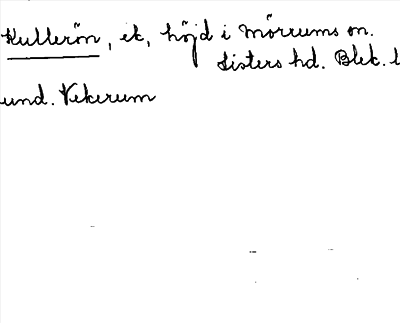 Kullerön, ek, höjd i Mörrums sn.
Listers hd. Blek. l
und. Vekerum